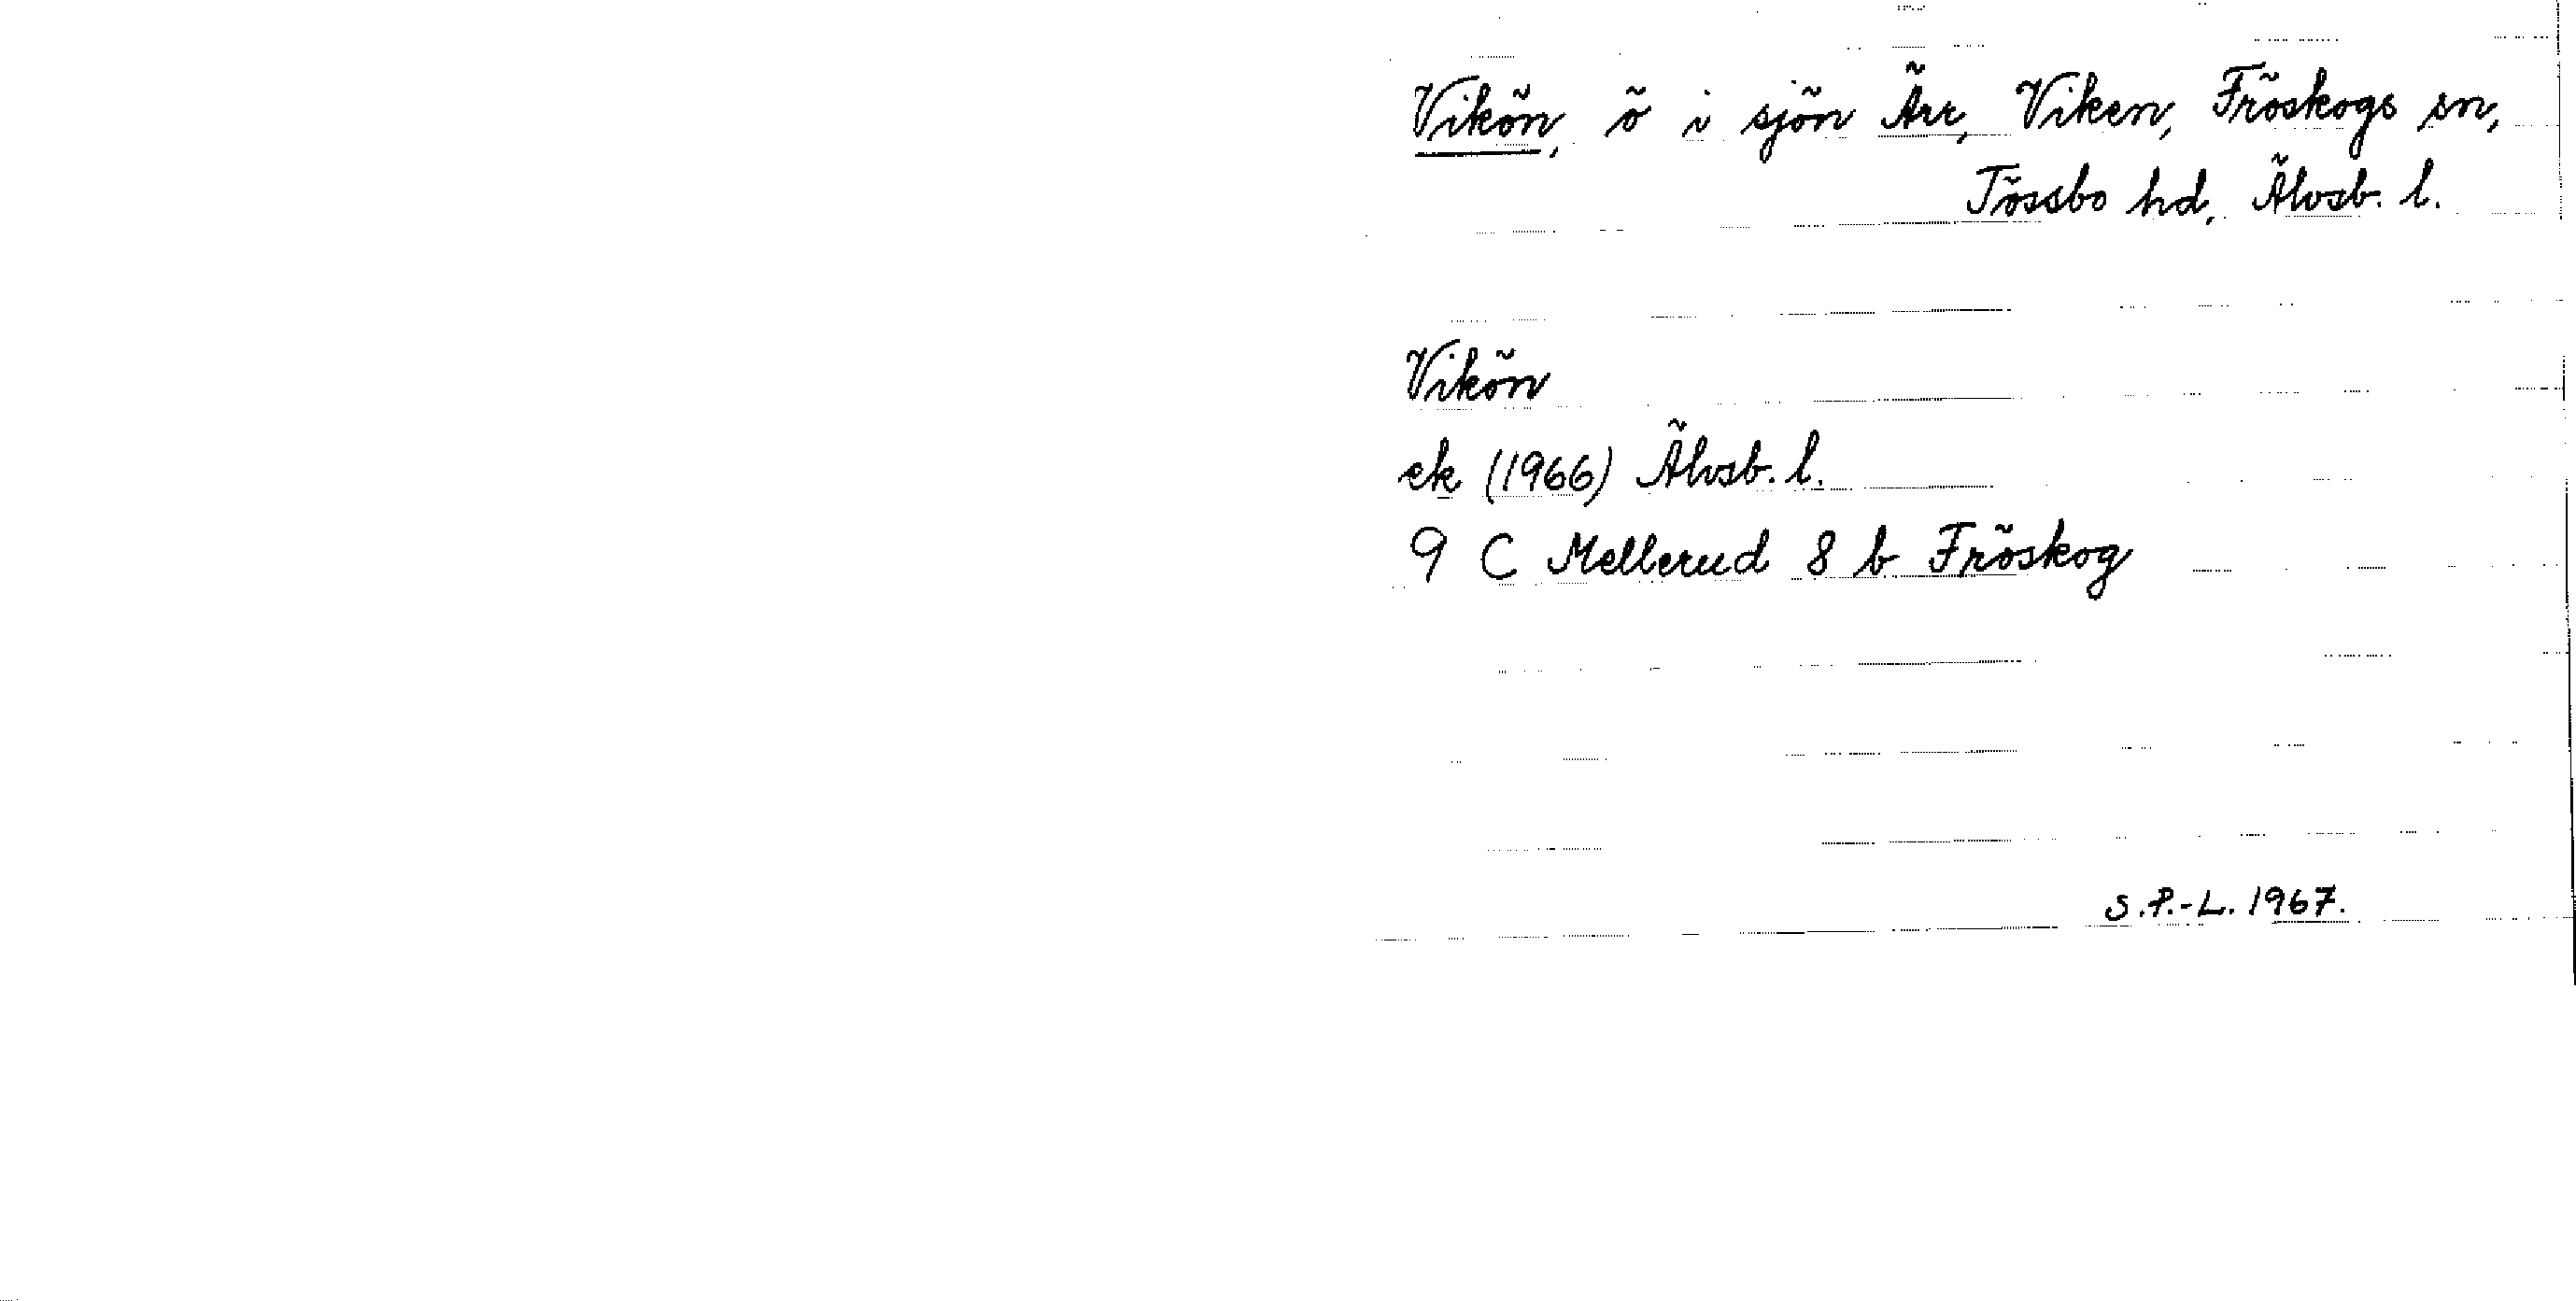 Vikön, ö i sjön Ärr, Viken, Fröskogs sn,
Tössbo hd, Älvsb. l.
Vikön
ek (1966) Älvsb. l.
9 C Mellerud 8 b Fröskog
S.P.-L. 1967.